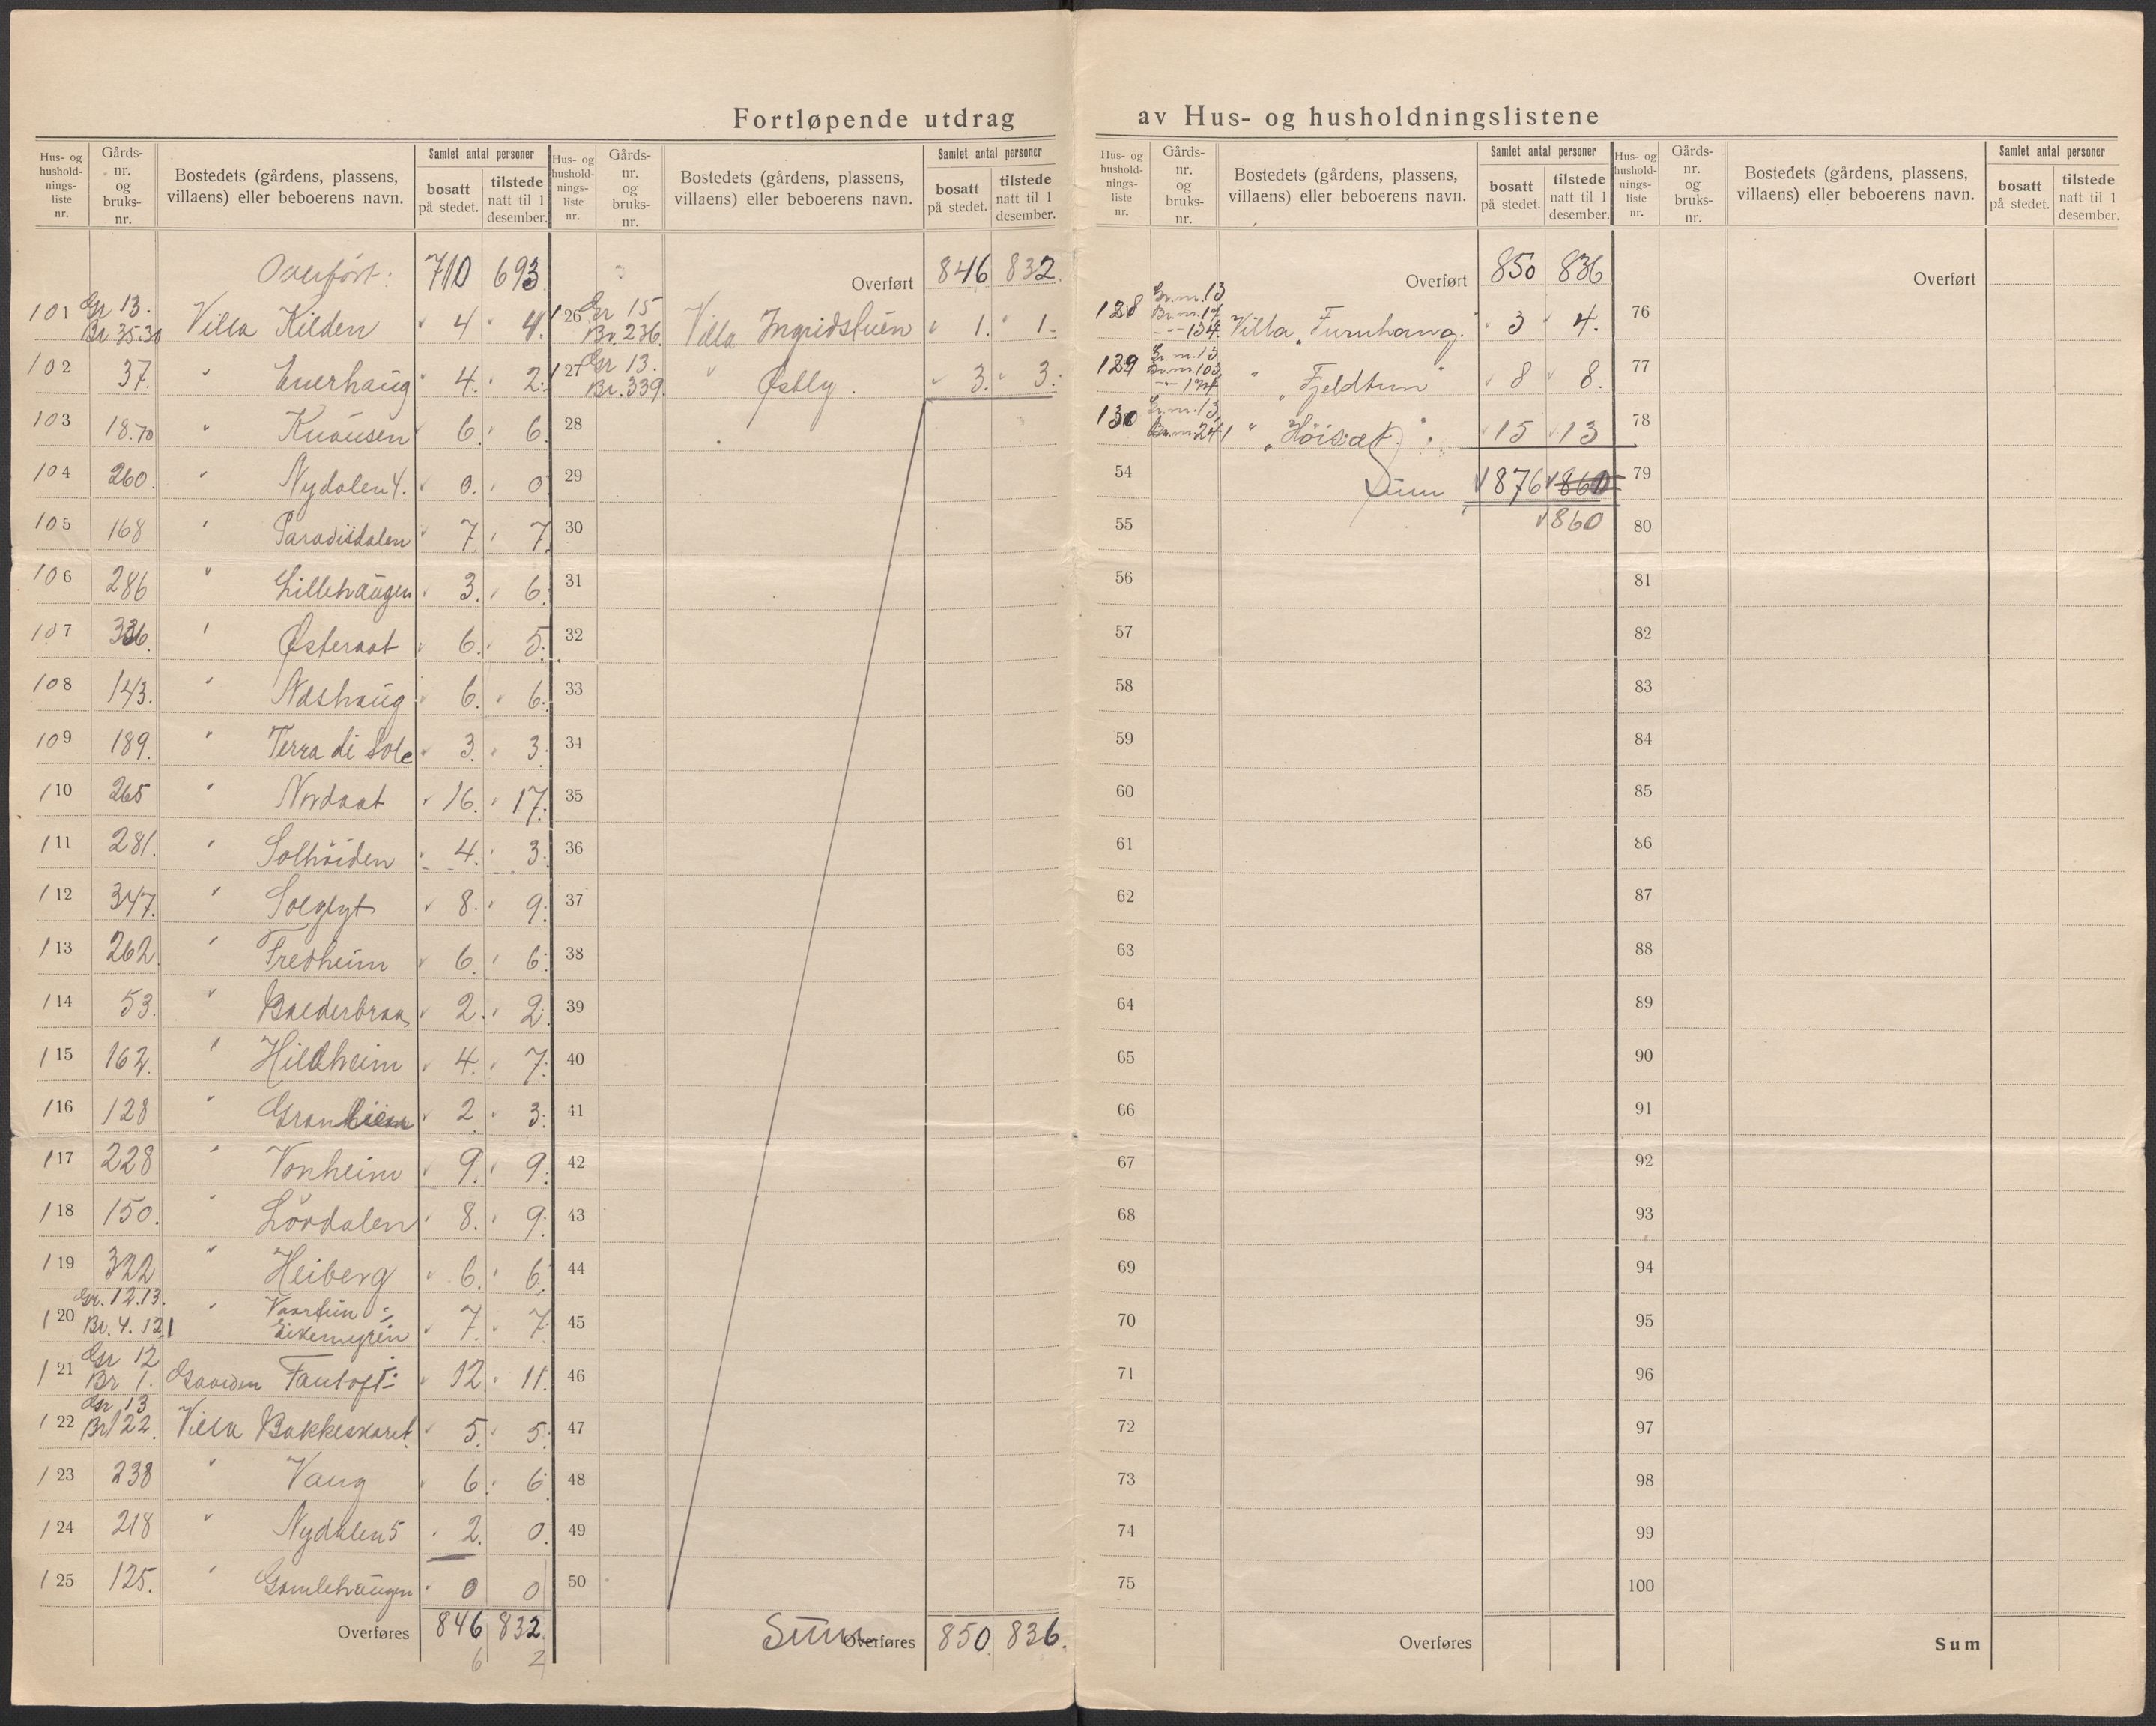 Fortløpende utdrag av Hus- og husholdningslistene
Hus- og hushold-nings-liste nr. | Gårds-nr. og bruks-nr. | Bostedets (gårdens, plassens, villaens) eller beboerens navn. | Samlet antal personer | bosatt på stedet. | tilstede natt til 1 desember.
Overført: 710 693
101 Gr 13. Br 35.30 Villa Kilden 4 4.
102 37. " Enerhaug 4. 2.
103 18.70 " Knausen 6. 6
104 260. " Nydalen 4. 0. 0
105 168 " Paradisdalen 7. 7
106 286 " Lillehaugen 3. 6
107 336. " Østeraat 6. 5.
108 143. " Næshaug 6. 6.
109 189. " Terra di Sole 3. 3.
110 265 " Nordaat 16. 17.
111 281. " Solhöiden 4. 3.
112 347. " Solglyt 8. 9.
113 262 " Fredheim 6. 6.
114 53. " Balderbraa 2. 2.
115 162. " Hildheim 4. 7.
116 128 " 2 3.
117 228 " Vonheim 9. 9.
118 150. " Lövdalen 8. 9.
119 322 " Heiberg 6. 6.
120 Gr. 12.13. Br. 4. 121 " Vaartun Eikemyren 7. 7
121 Gr 12 Br 1. Gaarden Fantoft 12. 11.
122 Gr 13 Br 122. Villa Bakkeskaret 5. 5.
123 238 " Vang 6. 6
124 218 " Nydalen 5 2. 0.
125 125. " Gamlehaugen 0 0
Overføres 846 832.
6 2
Hus- og hushold-nings-liste nr. | Gårds-nr. og bruks-nr. | Bostedets (gårdens, plassens, villaens) eller beboerens navn. | Samlet antal personer | bosatt på stedet. | tilstede natt til 1 desember.
Overført 846 832.
126 Gr 15 Br. 236. Villa Ingridstuen 1. 1.
127 Gr 13. Br. 339. " Østby. 3. 3.
28
29
30
31
32
33
34
35
36
37
38
39
40
41
42
43
44
45
46
47
48
49
50
Sum Overføres 850 836.
Hus- og hushold-nings-liste nr. | Gårds-nr. og bruks-nr. | Bostedets (gårdens, plassens, villaens) eller beboerens navn. | Samlet antal personer | bosatt på stedet. | tilstede natt til 1 desember.
Overført 850 836
128 Gr.nr. 13 Br.nr. 17 -"- 134 Villa "Furuhaug." 3 4.
129 Gr.nr. 13 Br.nr. 103 -"- 174 " "Fjeldtun" 8 8.
130 Gr.nr. 13, Br.nr. 241 " "Höisæt". 15 13
54 Sum 876 860
55 860
56
57
58
59
60
61
62
63
64
65
66
67
68
69
70
71
72
73
74
75
Overføres
Hus- og hushold-nings-liste nr. | Gårds-nr. og bruks-nr. | Bostedets (gårdens, plassens, villaens) eller beboerens navn. | Samlet antal personer | bosatt på stedet. | tilstede natt til 1 desember.
Overført
76
77
78
79
80
81
82
83
84
85
86
87
88
89
90
91
92
93
94
95
96
97
98
99
100
Sum